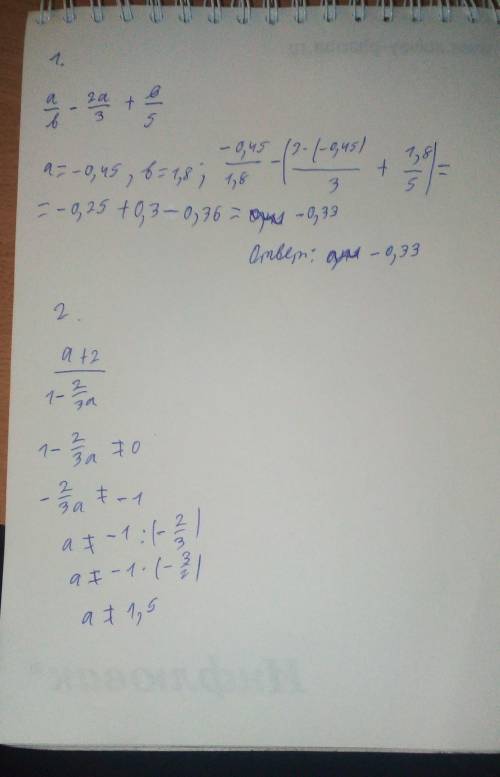 1.
a/b - 2a/3 + b/5
a = -0,45, b = 1,8; -0,45/1,8 - (2·(-0,45)/3 + 1,8/5) =
= -0,25 + 0,3 - 0,36 = -0,33
Ответ: -0,33
2.
a+2/1-2/3a
1 - 2/3a ≠ 0
-2/3a ≠ -1
a ≠ -1 : (-2/3)
a ≠ -1 · (-3/2)
a ≠ 1,5
Инфлювак